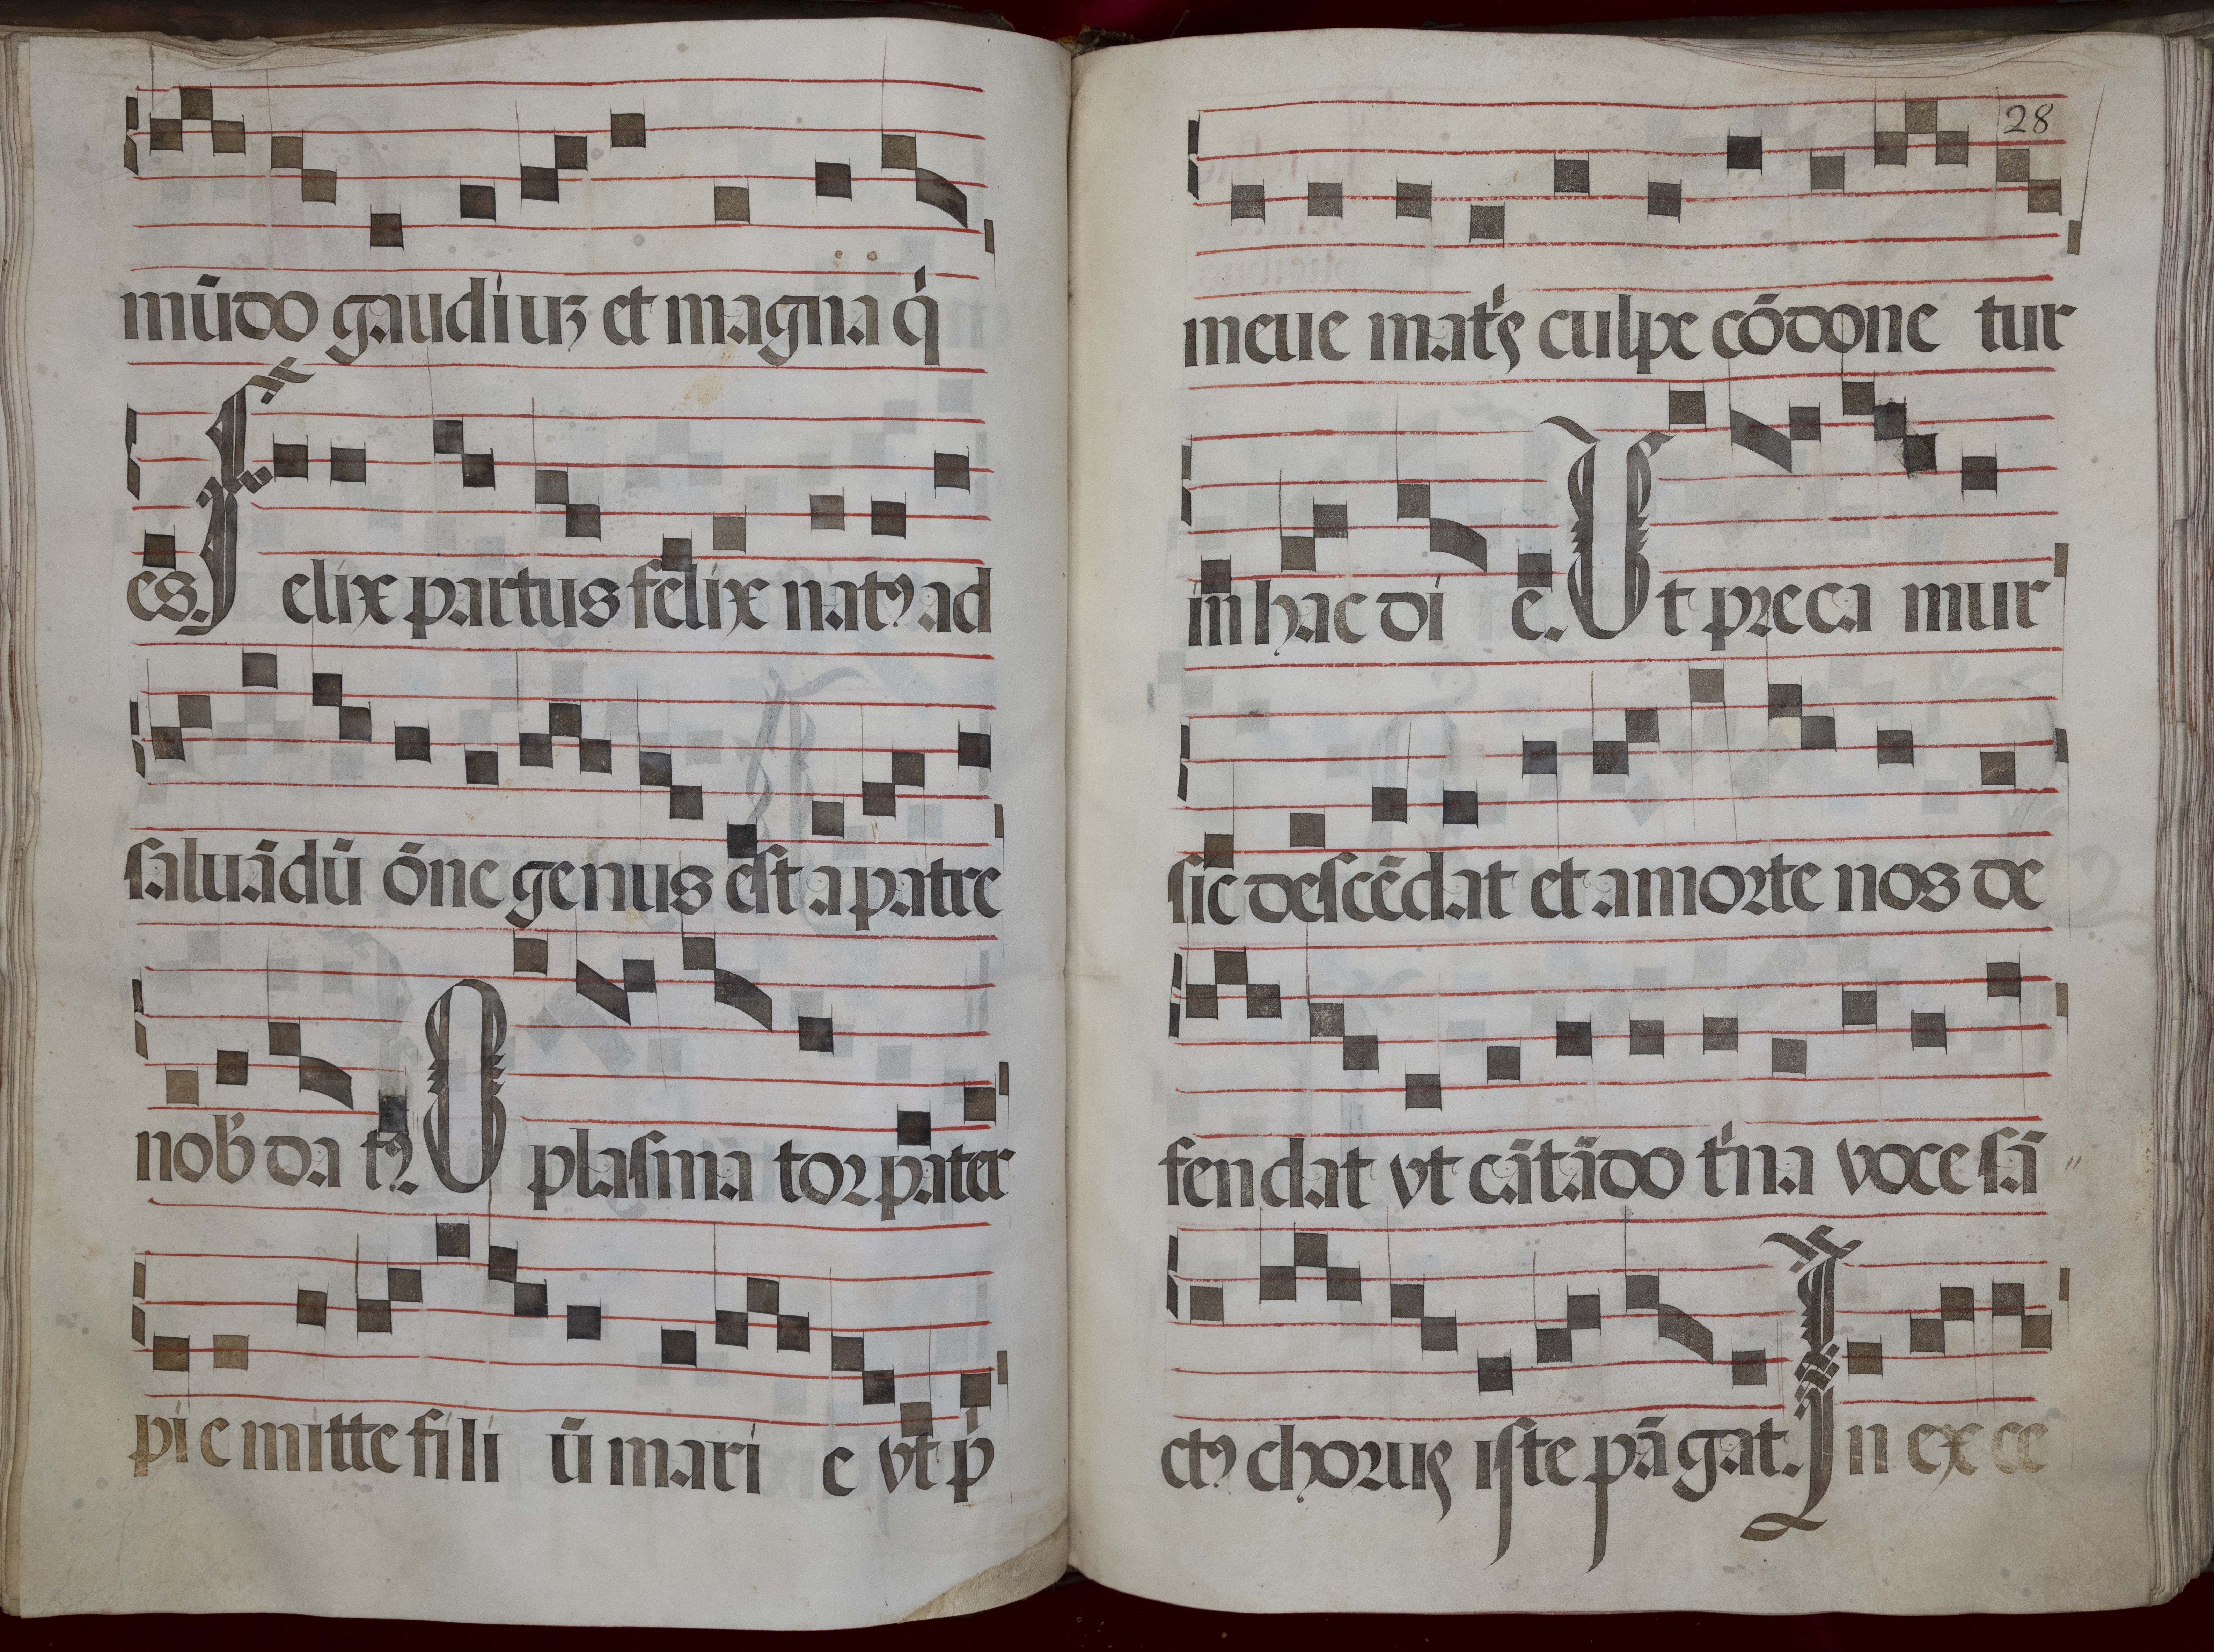 mūdo gaudiuꝫ et magna q̇
es. Felix partus felix natꝰ ad
saluādū ōne genus est a patre
nob̓ da tꝛ. O plasma toꝛ pater
pi e mitte fi li ū mari e vt p̓
28
meue mat̓ꝭ culpe cōdone tur
in hac di e. Ut pꝛe ca mur
sic descēdat et a moꝛte nos de
fen dat vt cātādo t̓na voce sā
ctꝰ choꝛuꝭ iste pāgat. In ex ce